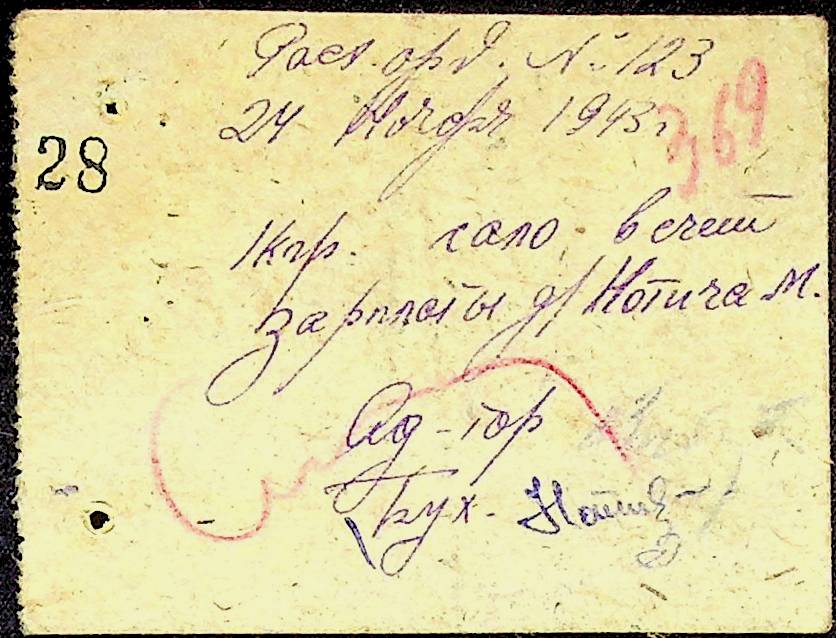 Расх. орд. № 123
24 Ноября 1943 г
369
28
1 кгр. сало в счет
зарплаты д/ Нотича М.
Ад-тор
Бух.